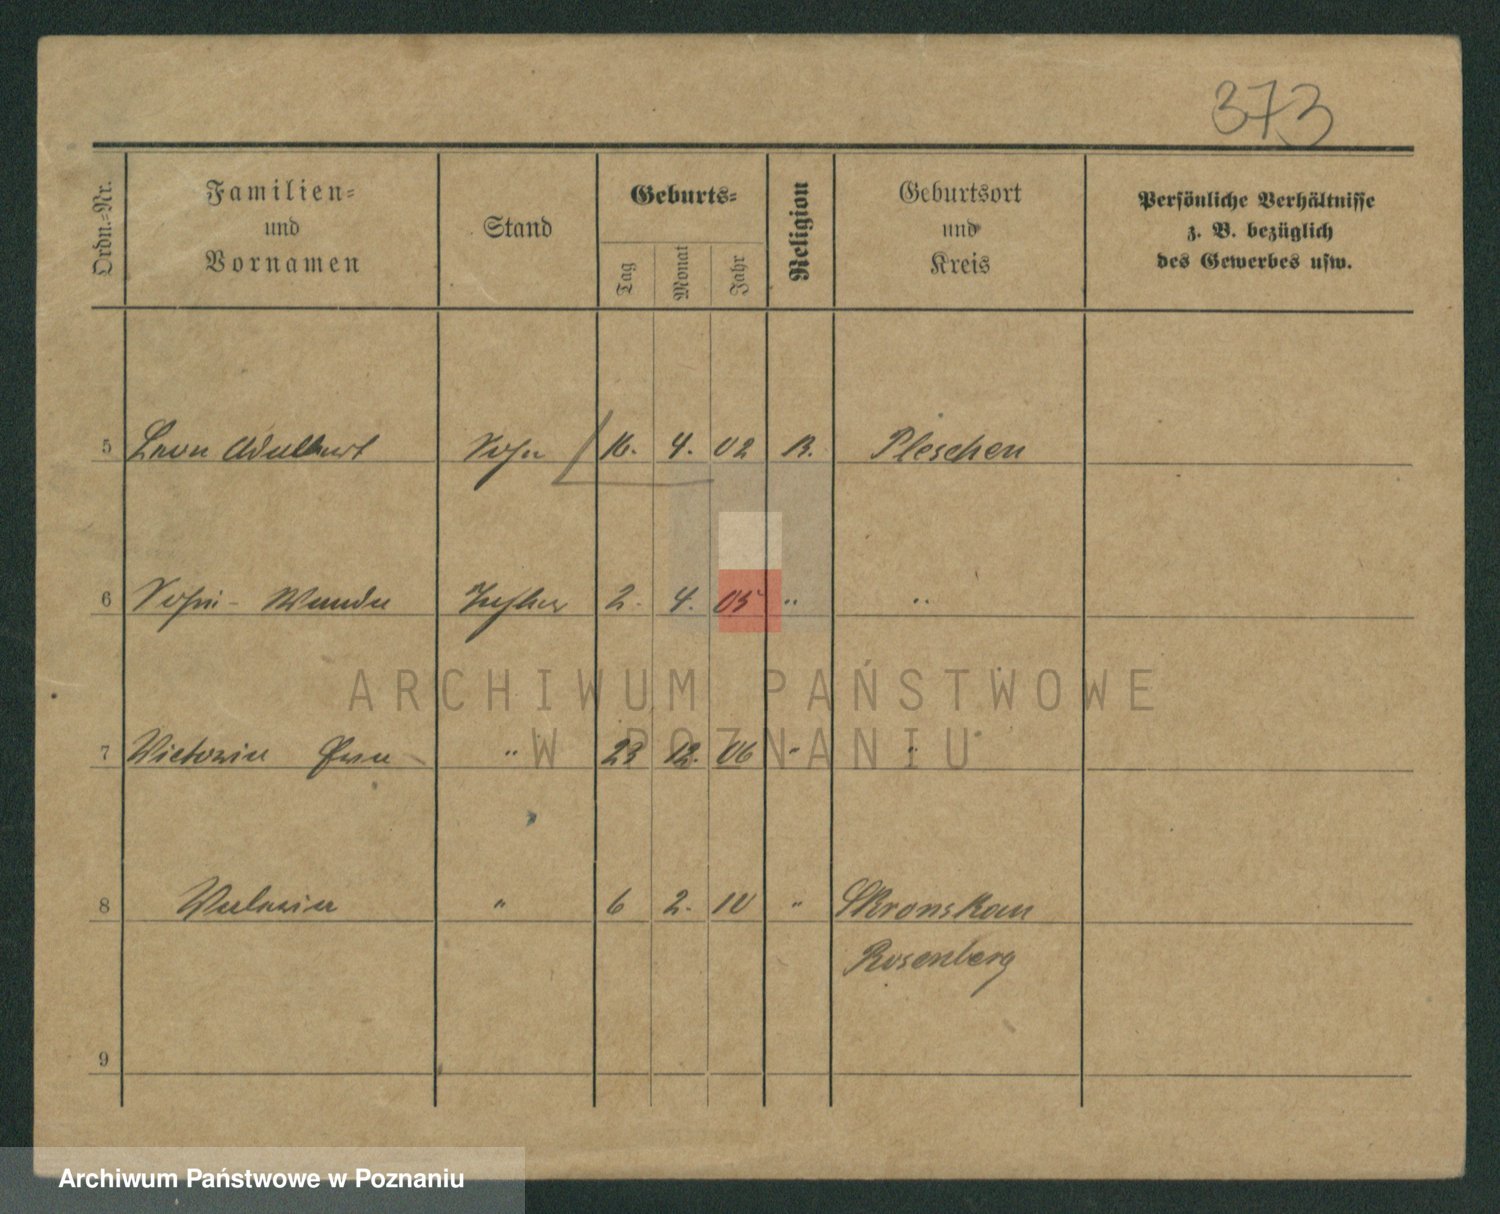 373
Ordn.-Nr.
Familien-
und
Vornamen
Stand
Geburts-
Tag
Monat
Jahr
Religion
Geburtsort
und
Kreis
Persönliche Verhältnisse
z. B. bezüglich
des Gewerbes usw.
5 Leon Adalbert Sohn 16. 4. 02 Pleschen
6 Wanda Tochter 2. 4. 05 " "
7 Victoria Ewa " 23 12. 06 " "
8 Valeria " 6 2. 10 "
Rosenberg
9
ARCHIWUM PAŃSTWOWE
W POZNANIU
Archiwum Państwowe w Poznaniu